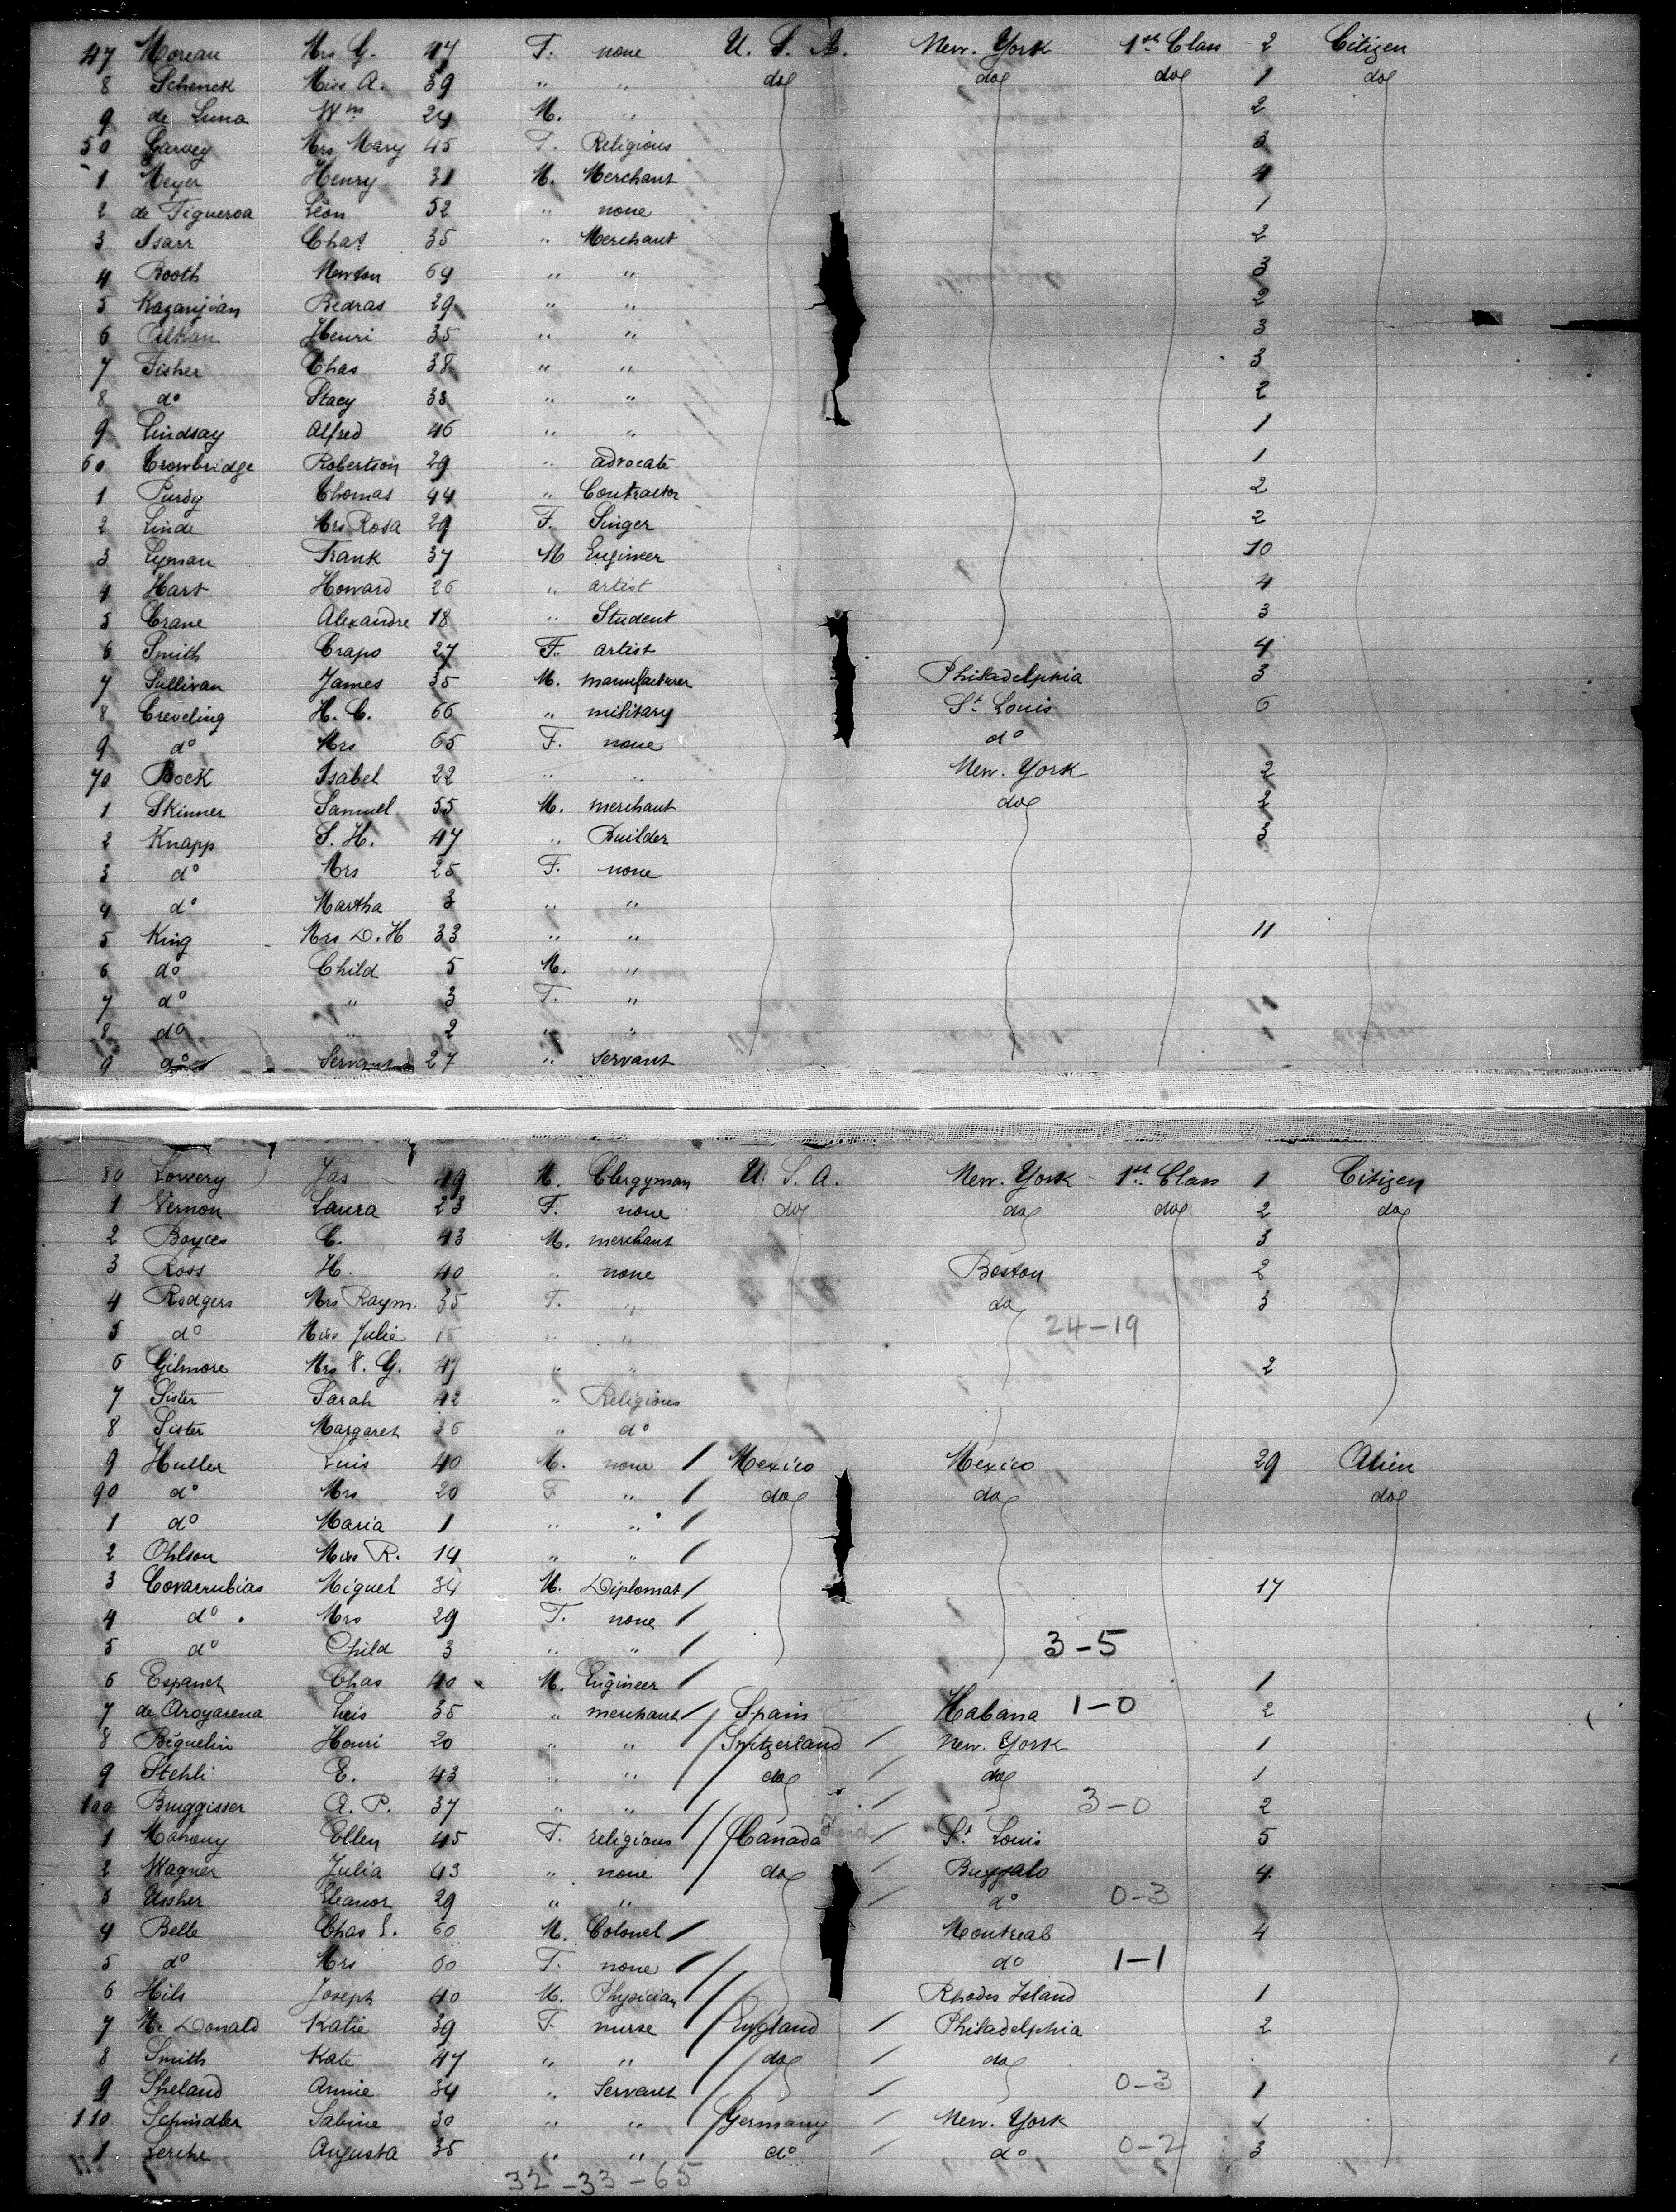 47 Moreau Mrs G. 47 F. none U. S. A. New. York 1st Class 2 Citizen
8 Schenck Miss A. 39 " " do do do 1 do
9 de Luna Wm 24 M. " 2
50 Garvey Mrs Mary 45 F. Religious 3
1 Meyer Henry 31 M. Merchant 4
2 de Figueroa Léon 52 " none 1
3 Isarr Chas 35 " Merchant 2
4 Booth Newton 64 " " 3
5 Kazanjian Bedras 29 " " 2
6 Alkan Henri 35 " " 3
7 Fisher Chas 38 " " 3
8 do Stacy 33 " " 2
9 Lindsay Alfred 46 " " 1
60 Crowbridge Robertson 29 " advocate 1
1 Purdy Thomas 44 " Contractor 2
2 Linde Mrs Rosa 29 F. Singer 2
3 Lyman Frank 37 M Engineer 10
4 Hart Howard 26 " artist 4
5 Crane Alexandre 18 " Student 3
6 Smith Crapo 27 F. artist 4
7 Sullivan James 35 M. manufacturer Philadelphia 3
8 Creveling H. C. 66 " military St. Louis 6
9 do Mrs 65 F. none do
70 Bock Isabel 22 " " New. York 2
1 Skinner Samuel 55 M. merchant do 2
2 Knapp S. H. 47 " Builder 3
3 do Mrs 25 F. none
4 do Martha 3 " "
5 King Mrs D. H 33 " " 11
6 do Child 5 M. "
7 do " 3 F. "
8 do " 2 " "
9 do Servant 27 " servant
80 Lowery Jas 49 M. Clergyman U. S. A. New. York 1st Class 1 Citizen
1 Vernon Laura 23 F. none do do do 2 do
2 Boyces C. 43 M. merchant 3
3 Ross H. 40 " none Boston 2
4 Rodgers Mrs Raym. 35 F. " do 3
5 do Miss Julie 15 " " 24-19
6 Gilmore Mrs V. G. 47 " " 2
7 Sister Sarah 42 " Religious
8 Sister Margaret 36 " do
9 Huller Luis 40 M. none / Mexico Mexico 29 Alien
90 do Mrs 20 F " / do do do
1 do Maria 1 " " /
2 Ohlson Miss R. 14 " " /
3 Covarrubias Miguel 34 M. Diplomat / 17
4 do Mrs 29 F. none /
5 do Child 3 " " / 3-5
6 Espanet Chas 40 M. Engineer / 1
7 de Aroyarena Luis 35 " merchant / Spain Habana 1-0 2
8 Biguelin Henri 20 " " / Switzerland / New. York 1
9 Stehli E. 43 " " / do / do 1
100 Bruggisser A. P. 37 " " / / 3-0 2
1 Mahony Ellen 45 F. religious / Canada French / St. Louis 5
2 Wagner Julia 43 " none / do / Buffalo 4
3 Ussher Eleanor 29 " " / do 0-3
4 Belle Chas E. 60 M. Colonel / Montreal 4
5 do Mrs 60 F. none / do 1-1
6 Hils Joseph 40 M. Physician / Rhodes Island 1
7 Mc Donald Katie 39 F. nurse / England / Philadelphia 2
8 Smith Kate 47 " " / do / do
9 Sheland Annie 34 " Servant / / 0-3 1
110 Schindler Sabine 30 " " / Germany / New. York 1
1 Lerche Augusta 35 " " / do / do 0-2 3
32-33-65